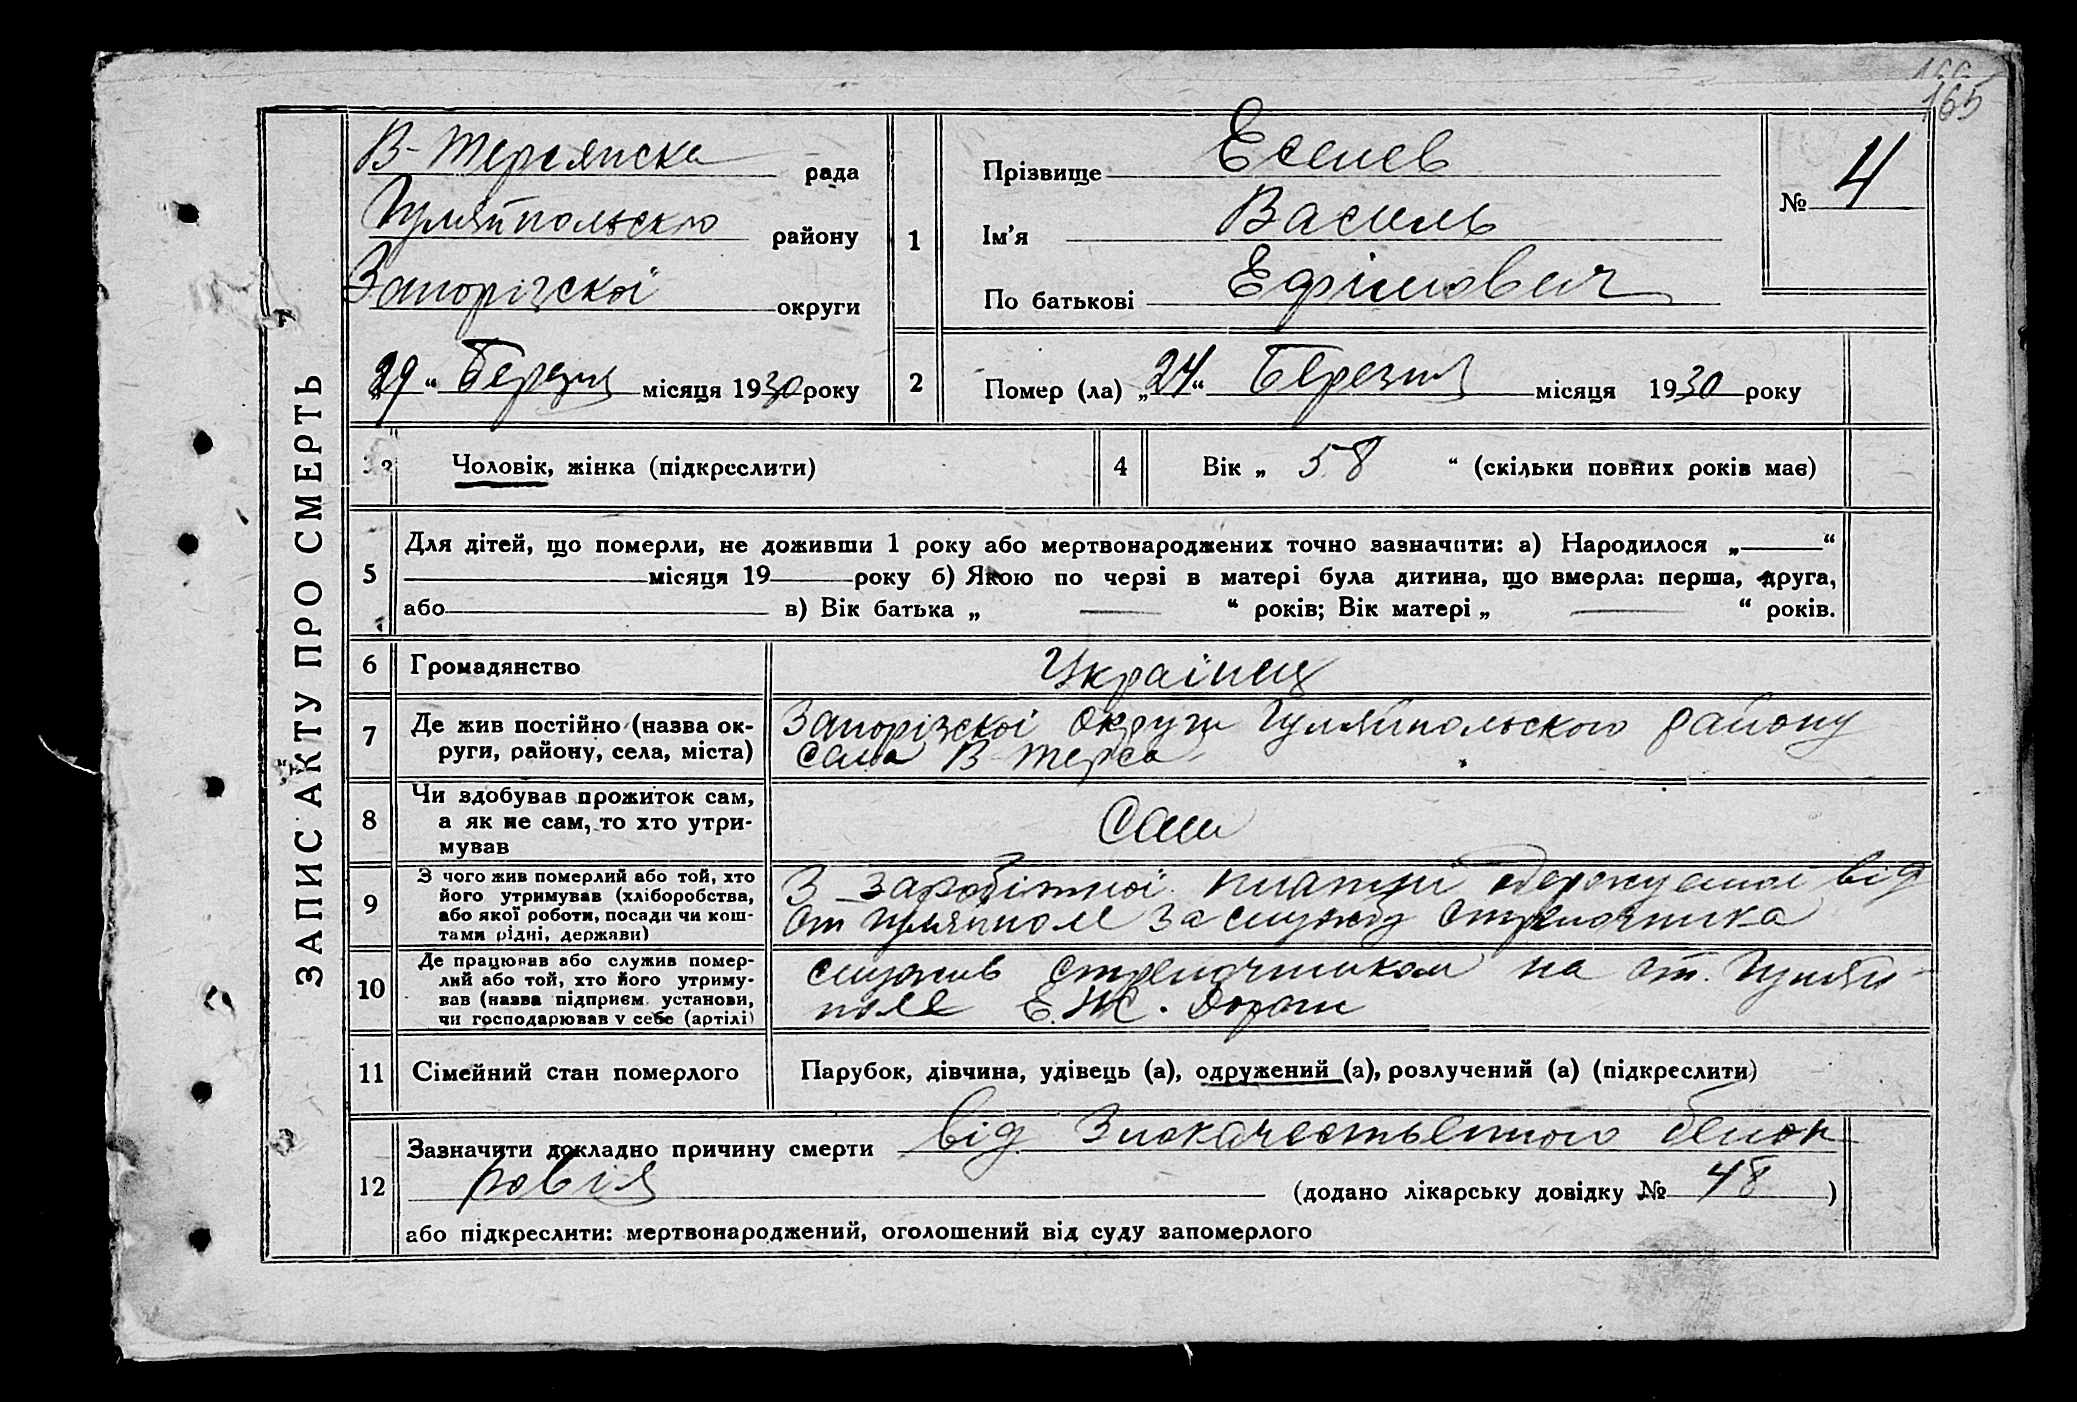 165
ЗАПИС АКТУ ПРО СМЕРТЬ
В-Терсянска рада
Гуляйпольского району
Запорізскої округи
29 " Березня місяця 1930 року
1
Прізвище
Василь
Ім'я
По батькові Ефімович
№ 4
2 Помер (ла) „ 24 " Березня місяця 1930 року
3 Чоловік, жінка (підкреслити)
4 Вік „ 58 " (скільки повних років має)
5 Для дітей, що померли, не доживши 1 року або мертвонароджених точно зазначити: а) Народилося „ "
місяця 19 року б) Якою по черзі в матері була дитина, що вмерла: перша, друга,
або в) Вік батька „ " років; Вік матері „ " років.
6 Громадянство Українец
7 Де жив постійно (назва ок-
руги, району, села, міста)
Запорізскої округи Гуляйпольского району
села В Терса
8 Чи здобував прожиток сам,
а як не сам, то хто утри-
мував
Сам
9 З чого жив померлий або той, хто
його утримував (хліборобства,
або якої роботи, посади чи кош-
тами рідні, держави)
З заробітної платні від
ст Гуляйполе за службу стрелочника
10 Де працював або служив помер-
лий або той, хто його утриму-
вав (назва підприєм. установи,
чи господарював у себе (артілі)
служив стрелочником на ст. Гуляй-
поле Е. Ж. Дороги
11 Сімейний стан померлого Парубок, дівчина, удівець (а), одружений (а), розлучений (а) (підкреслити)
12 Зазначити докладно причину смерти від Злокачественного белок-
ровія (додано лікарську довідку № 48 )
або підкреслити: мертвонароджений, оголошений від суду запомерлого